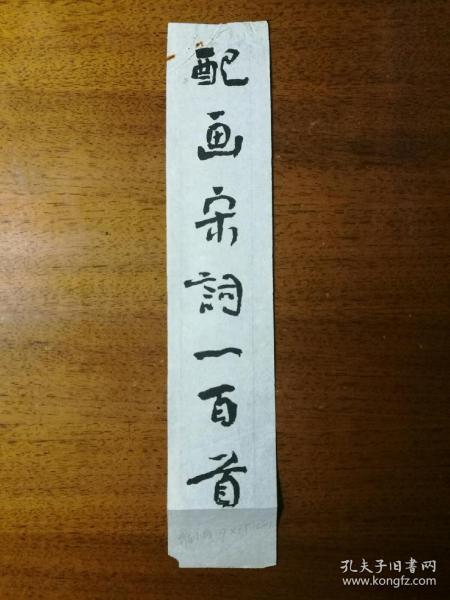 配画宋詞一百首
孔夫子旧书网
www.kongfz.com